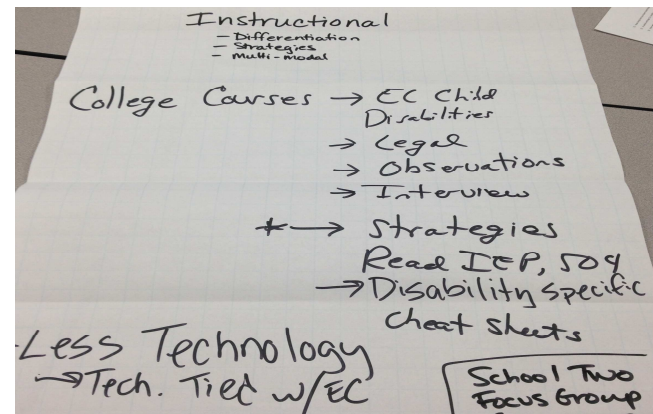 Instructional
– Differentiation
– Strategies
– Multi-modal
College Courses → EC Child
Disabilities
→ Legal
→ Observations
→ Interview
*→ Strategies
Read IEP, 504
→ Disability specific
Cheat Sheets
-Less Technology
→Tech. Tied w/EC
School Two
Focus Group